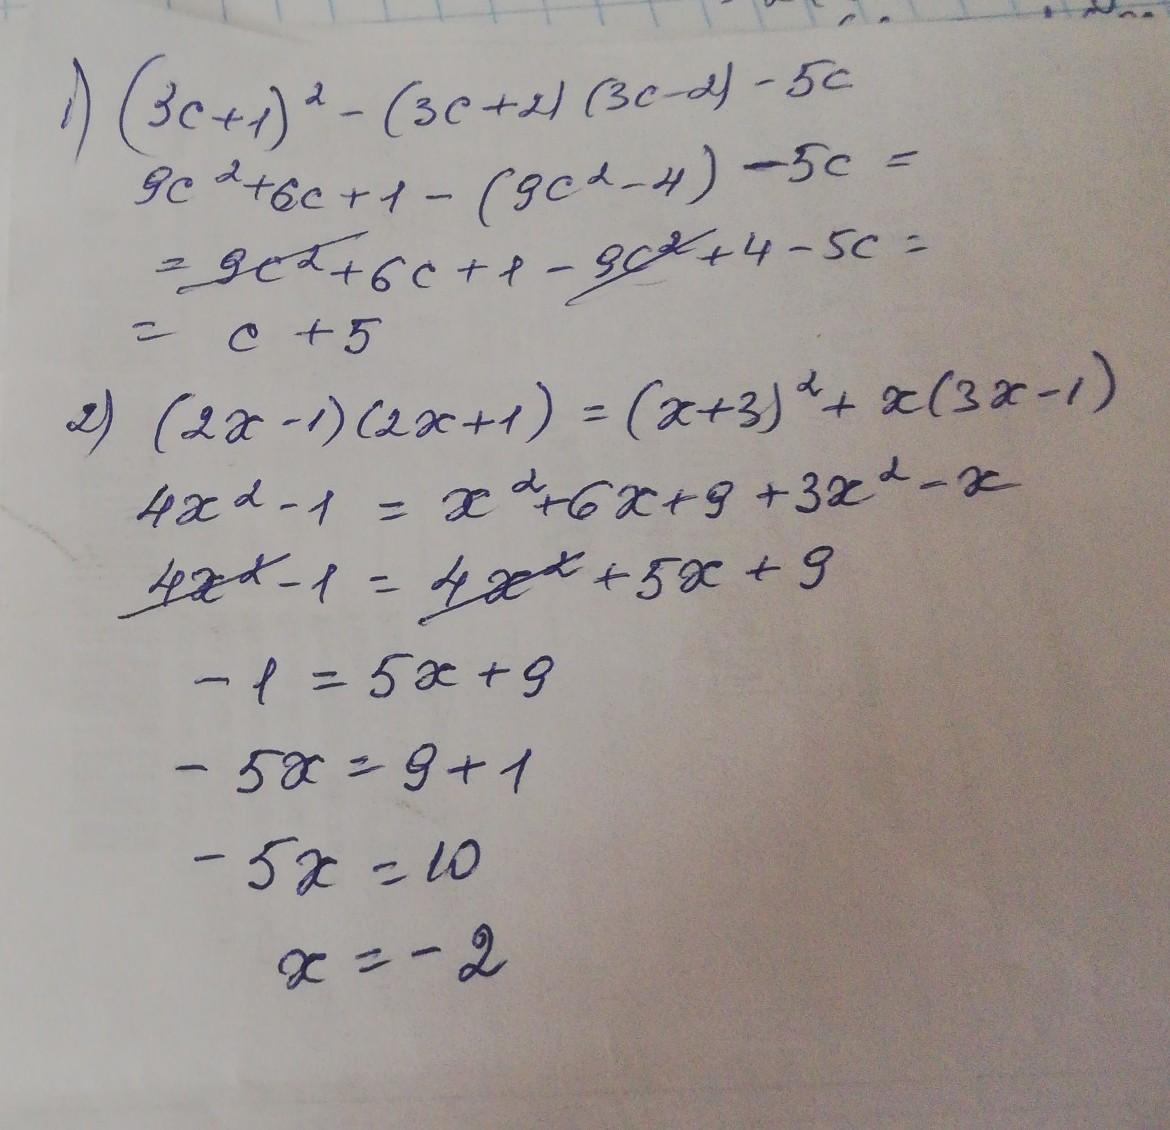 1) (3c+1)² - (3c+2) (3c-2) - 5c
9c²+6c+1 - (9c²-4) -5c =
= 9c²+6c+1 - 9c²+4-5c =
= c + 5
2) (2x-1)(2x+1) = (x+3)² + x(3x-1)
4x²-1 = x²+6x+9+3x²-x
4x²-1 = 4x²+5x+9
-1 = 5x+9
-5x = 9+1
-5x = 10
x = -2